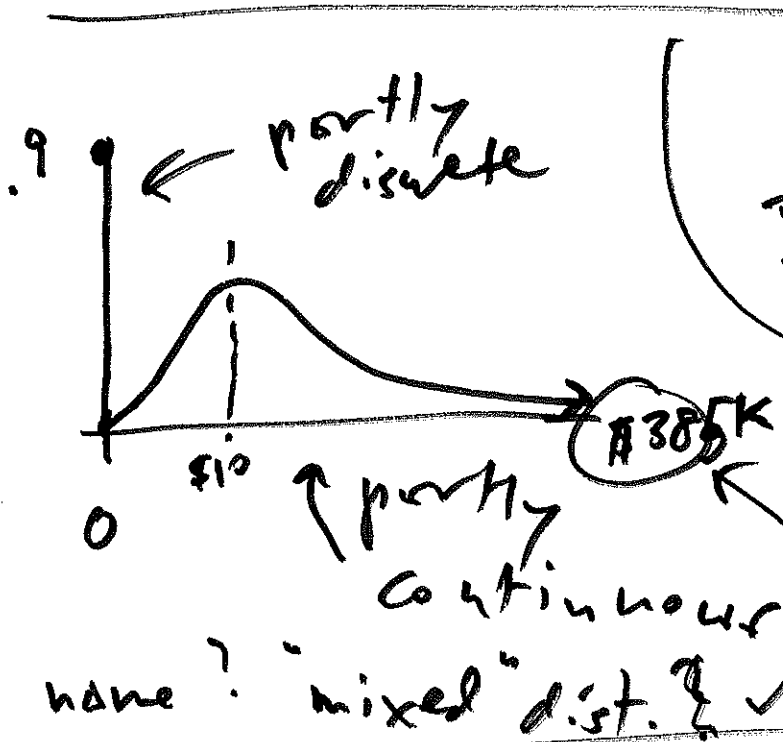 .9
partly
discrete
$10
$385K
0
partly
continuous
name? "mixed" dist.